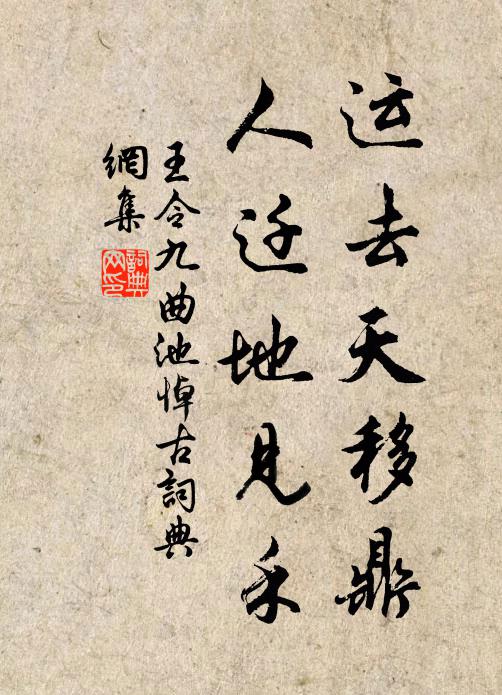 运去天移鼎
人迁地见禾
王令九曲池悼古詞典
網集
詞典
网印